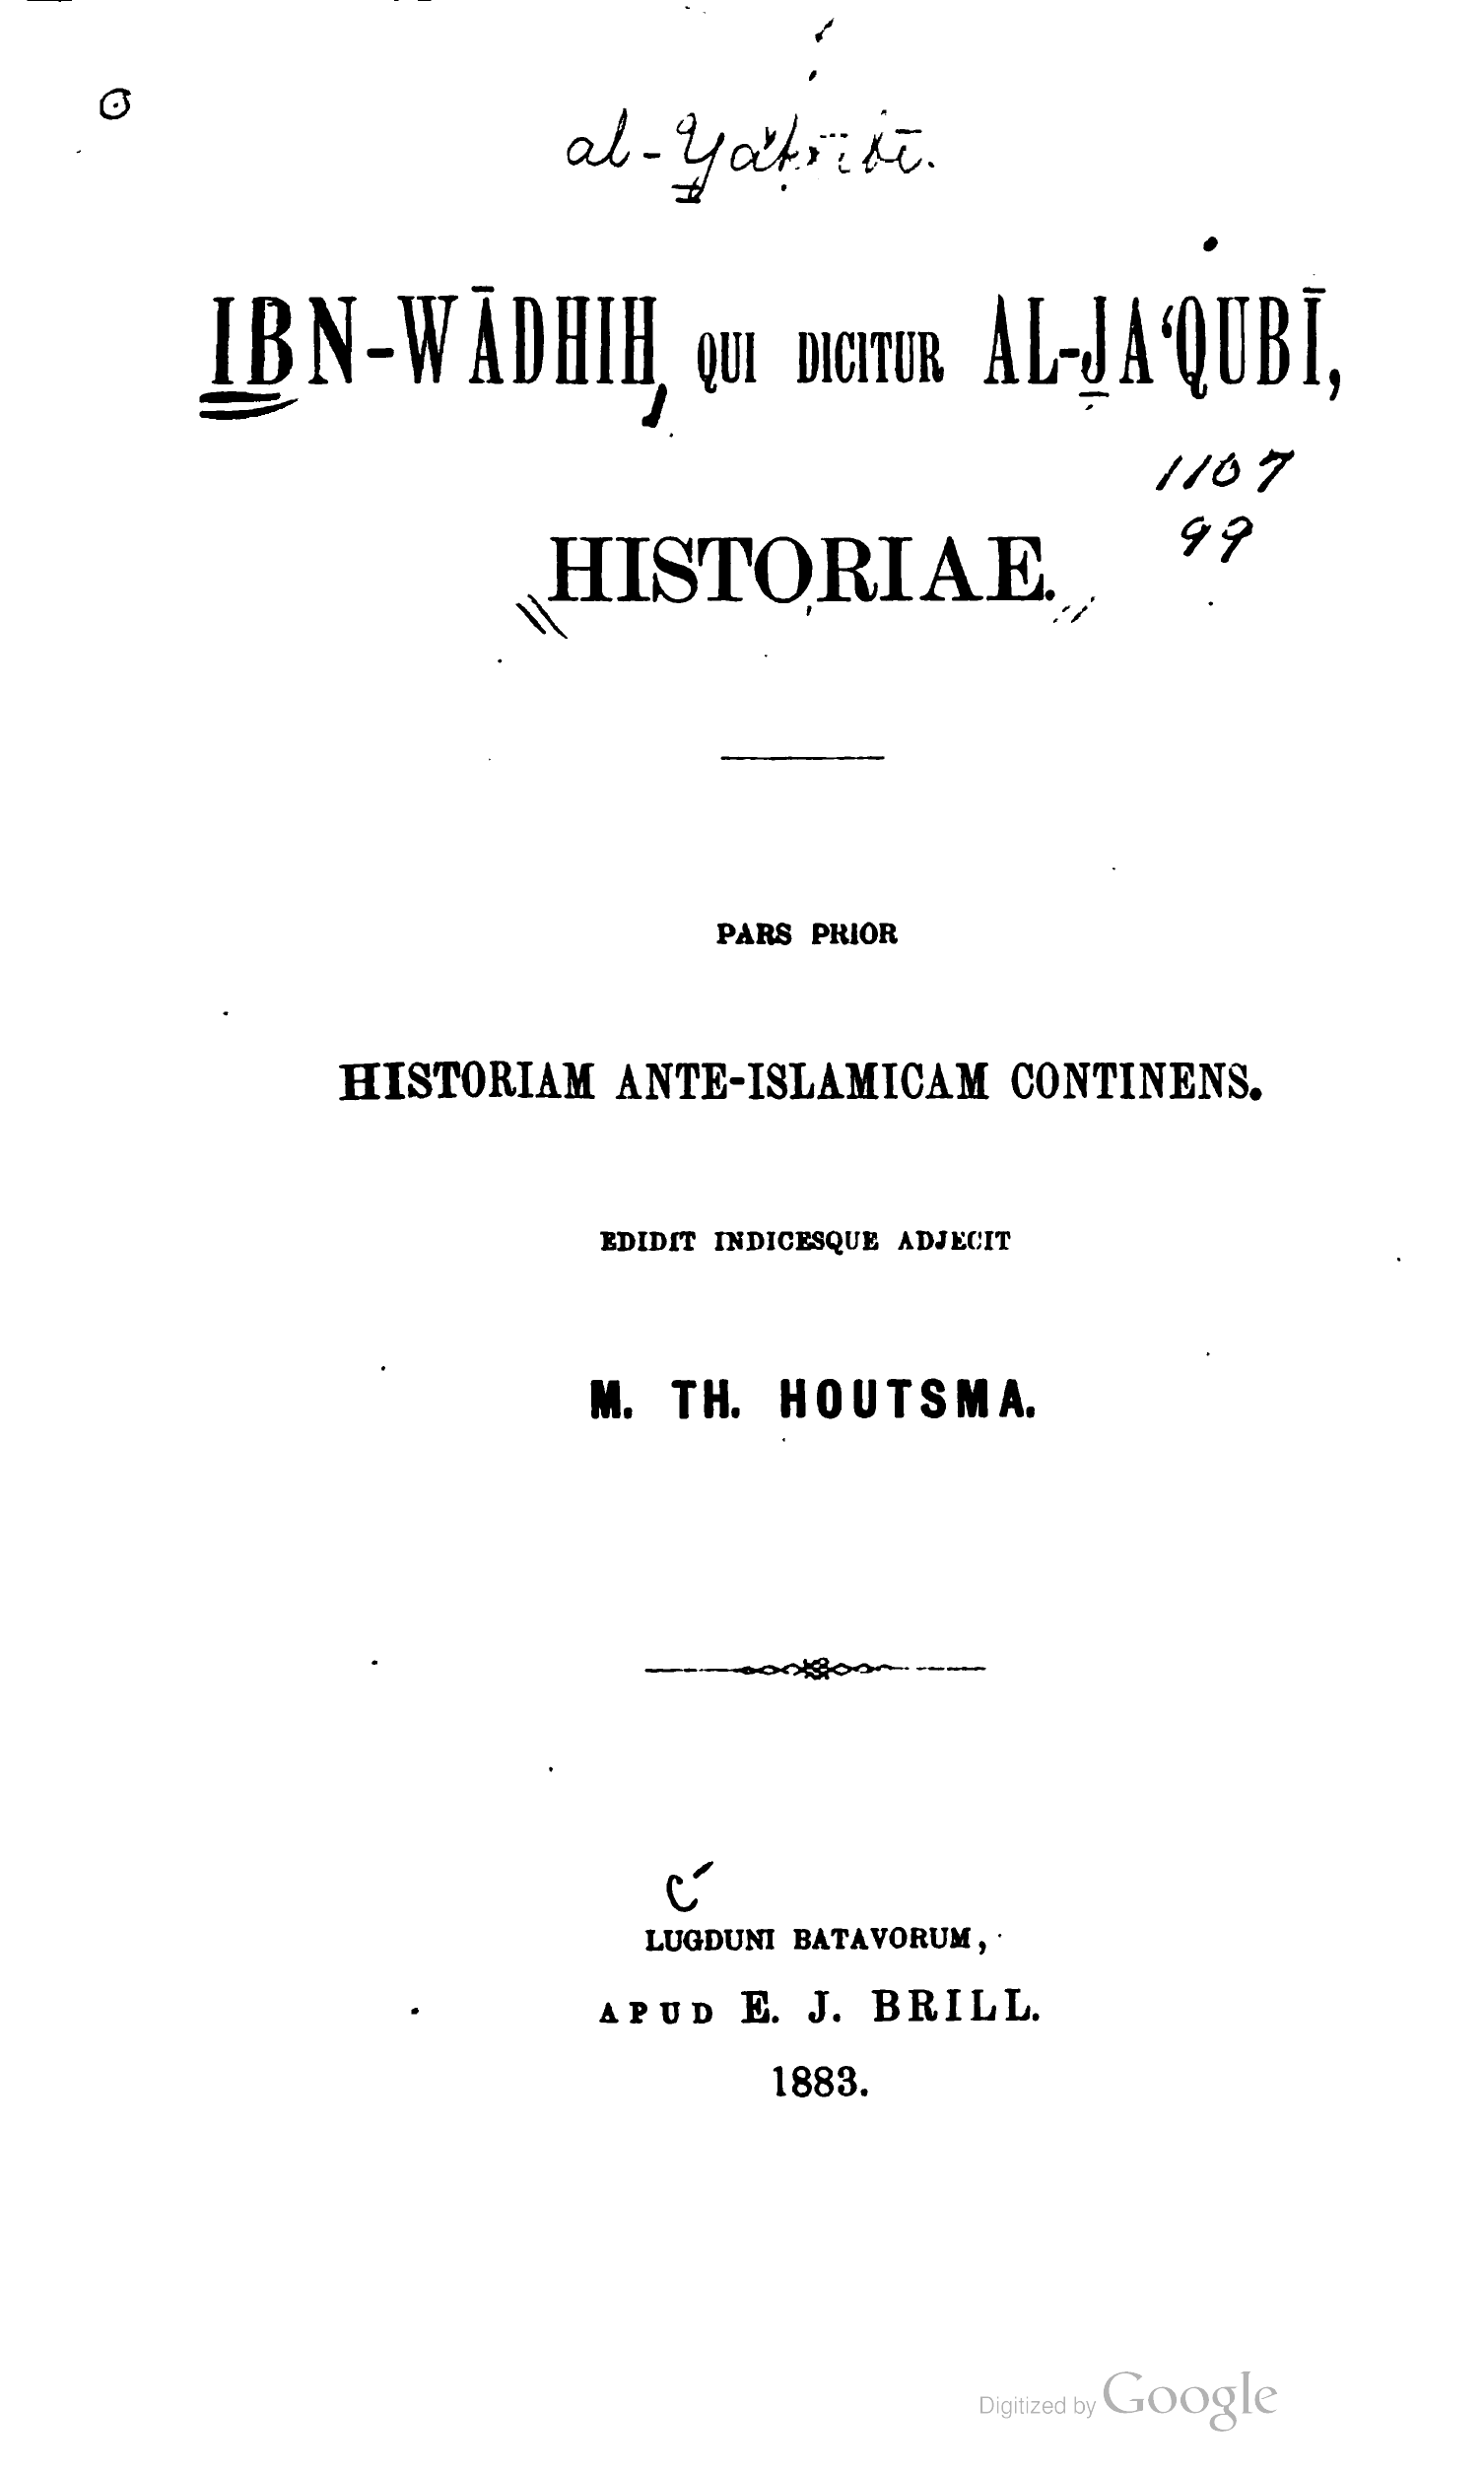 al-Ya'ḳūbī.
IBN-WĀDHIH, QUI DICITUR AL-JA‘QUBĪ,
1107
99
HISTORIAE.
PARS PRIOR
HISTORIAM ANTE-ISLAMICAM CONTINENS.
EDIDIT INDICESQUE ADJECIT
M. TH. HOUTSMA.
c
LUGDUNI BATAVORUM,
APUD E. J. BRILL.
1883.
Digitized by Google